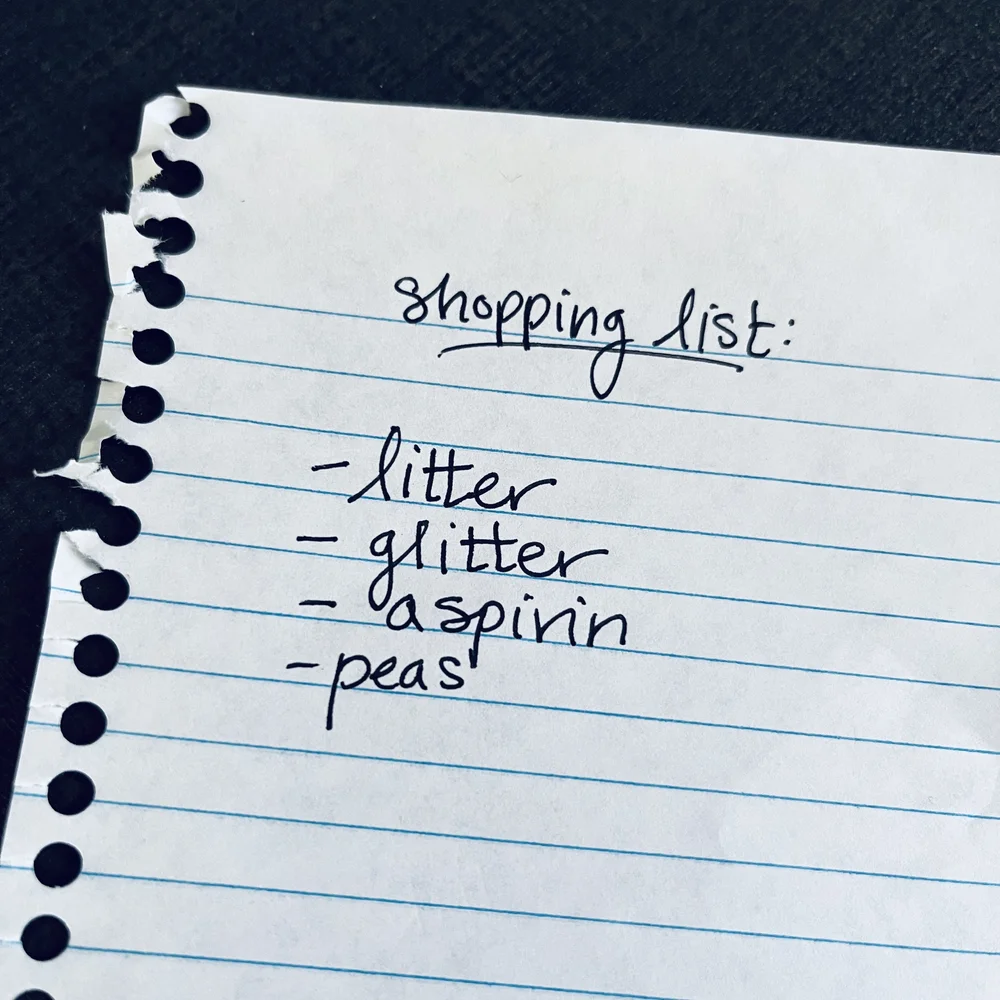 shopping list:
- litter
- glitter
- aspirin
- peas